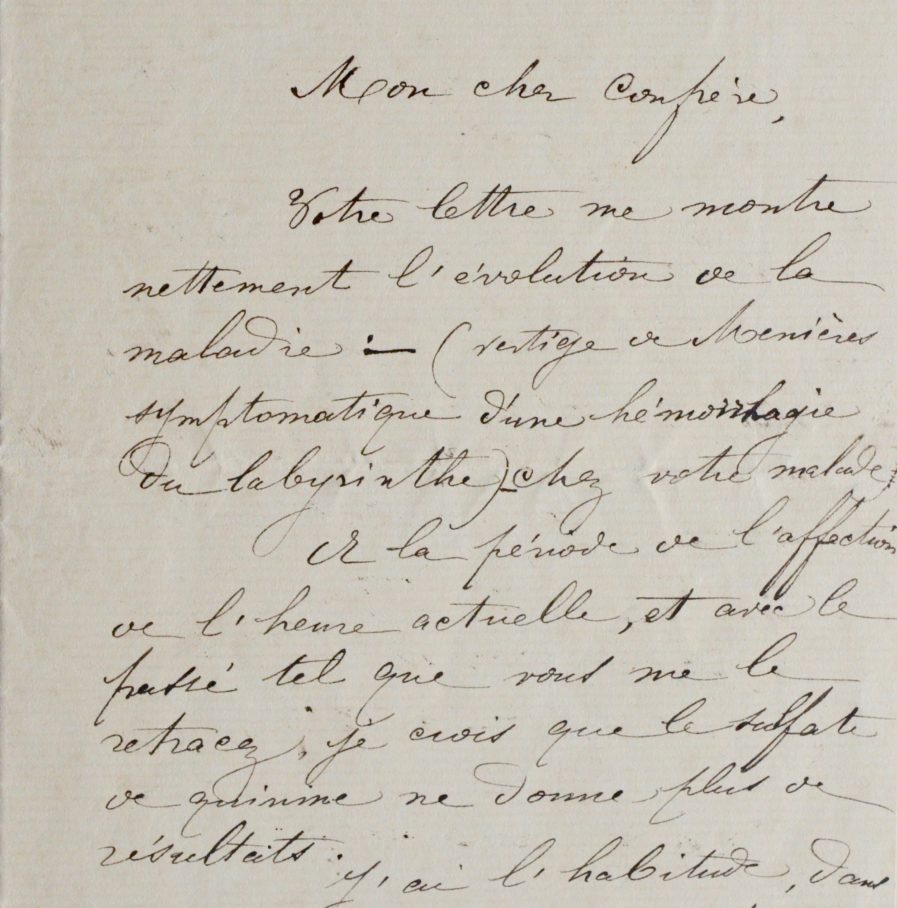 Mon cher Confrère,
Votre lettre me montre
nettement l'évolution de la
maladie :— (vertige de Menières
symptomatique d'une hémorrhagie
du labyrinthe) chez votre malade.
A la période de l'affection
de l'heure actuelle, et avec le
passé tel que vous me le
retracez, je crois que le sulfate
de quinine ne donne plus de
résultats.
J'ai l'habitude, dans